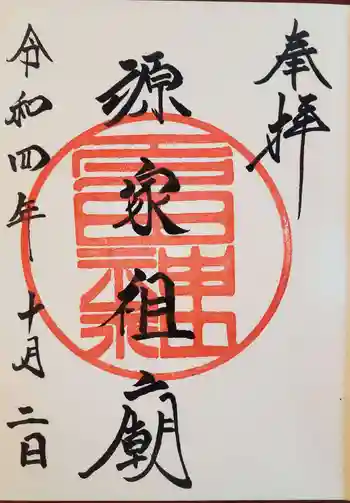 奉拝
源家祖廟
令和四年十月二日